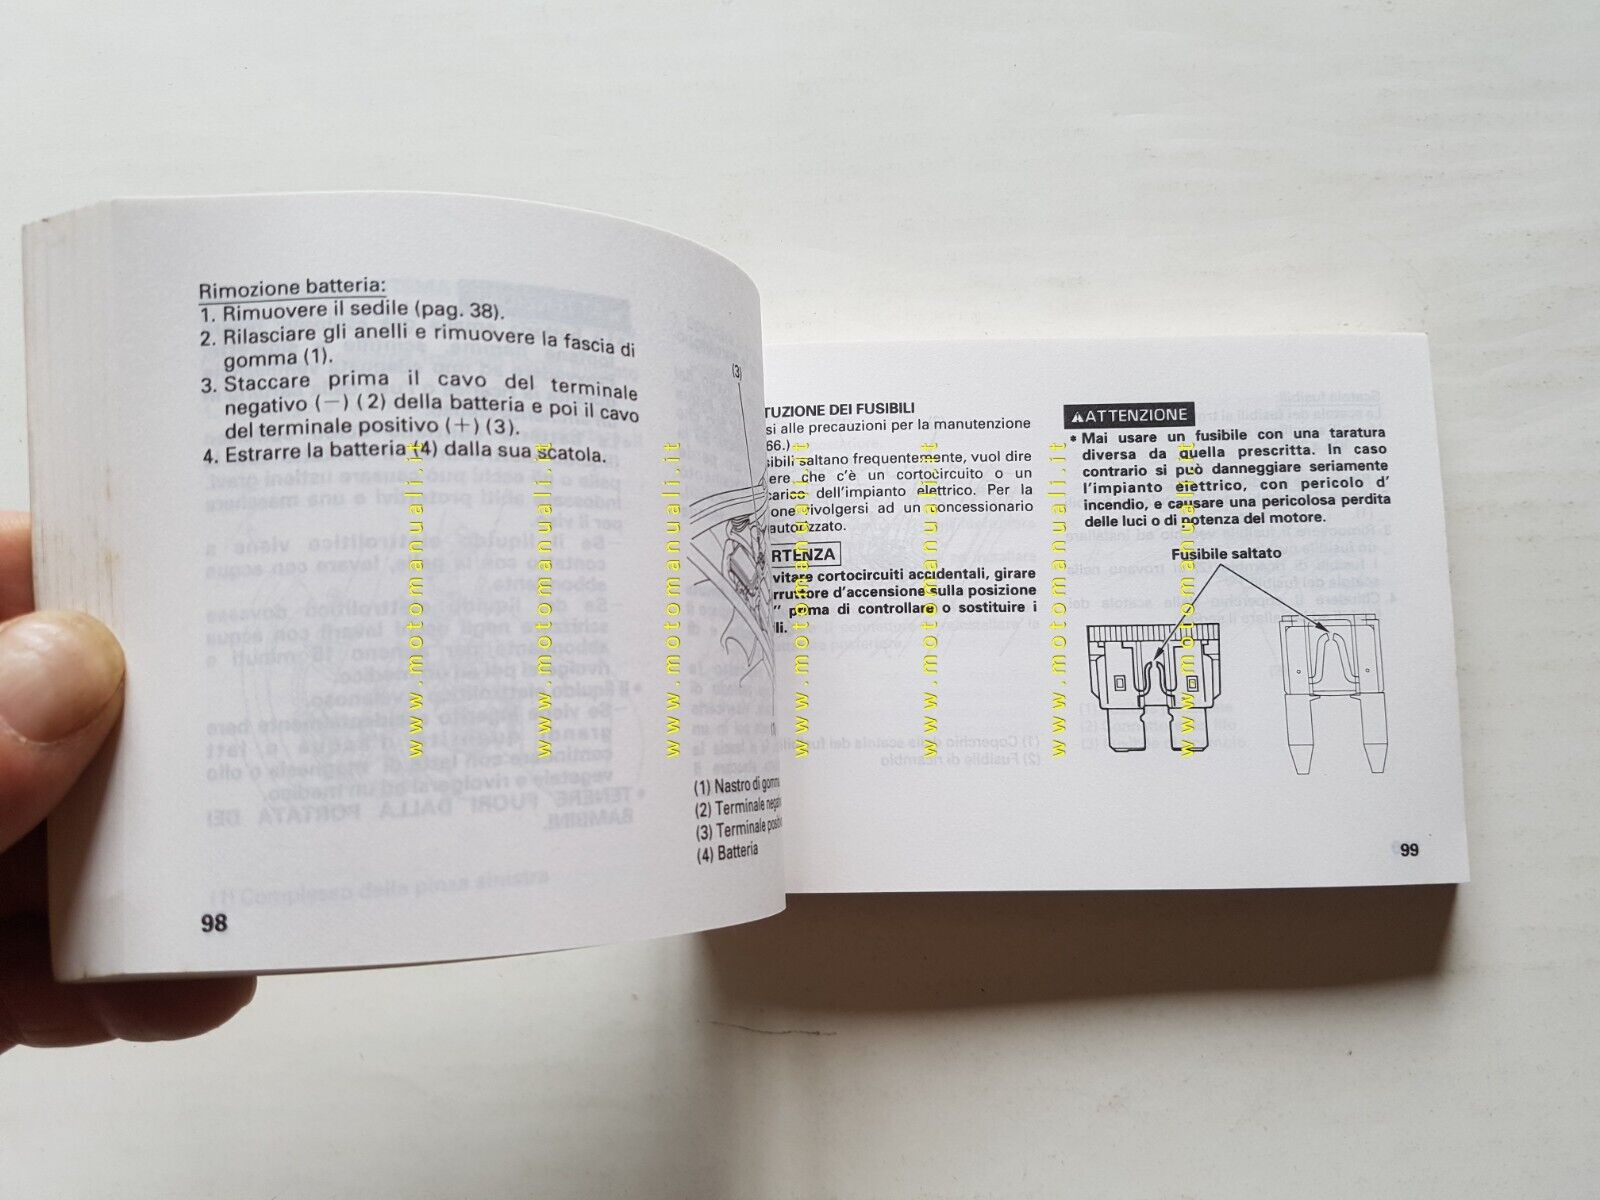 Rimozione batteria:
1. Rimuovere il sedile (pag. 38).
2. Rilasciare gli anelli e rimuovere la fascia di
gomma (1).
3. Staccare prima il cavo del terminale
negativo (−) (2) della batteria e poi il cavo
del terminale positivo (+) (3).
4. Estrarre la batteria (4) dalla sua scatola.
(3)
(1)
(1) Nastro di gomma
(2) Terminale
(3) Terminale
(4) Batteria
98
TUZIONE DEI FUSIBILI
si alle precauzioni per la manutenzione
66.)
sibili saltano frequentemente, vuol dire
ere che c'è un cortocircuito o un
carico dell'impianto elettrico. Per la
one rivolgersi ad un concessionario
autorizzato.
RTENZA
vitare cortocircuiti accidentali, girare
rruttore d'accensione sulla posizione
" prima di controllare o sostituire i
li.
ATTENZIONE
* Mai usare un fusibile con una taratura
diversa da quella prescritta. In caso
contrario si può danneggiare seriamente
l'impianto elettrico, con pericolo d'
incendio, e causare una pericolosa perdita
delle luci o di potenza del motore.
Fusibile saltato
99
www.motomanuali.it
www.motomanuali.it
www.motomanuali.it
www.motomanuali.it
www.motomanuali.it
www.motomanuali.it
www.motomanuali.it